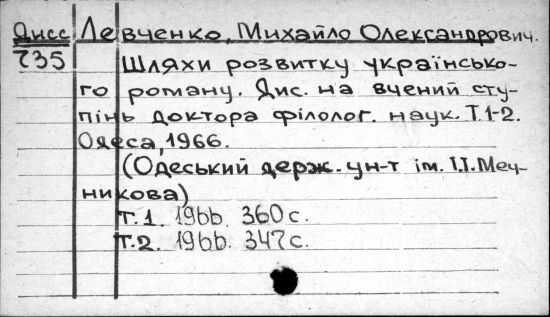 Дисс Левченко, Михайло Олександрович.
735 Шляхи розвитку українсько-
го роману. Дис. на вчений сту-
пінь доктора філолог. наук. Т.1-2.
Одеса, 1966.
(Одеський держ. ун-т ім. І.І.Меч-
никова)
Т.1. 1966. 360 с.
Т.2. 1966. 347 с.